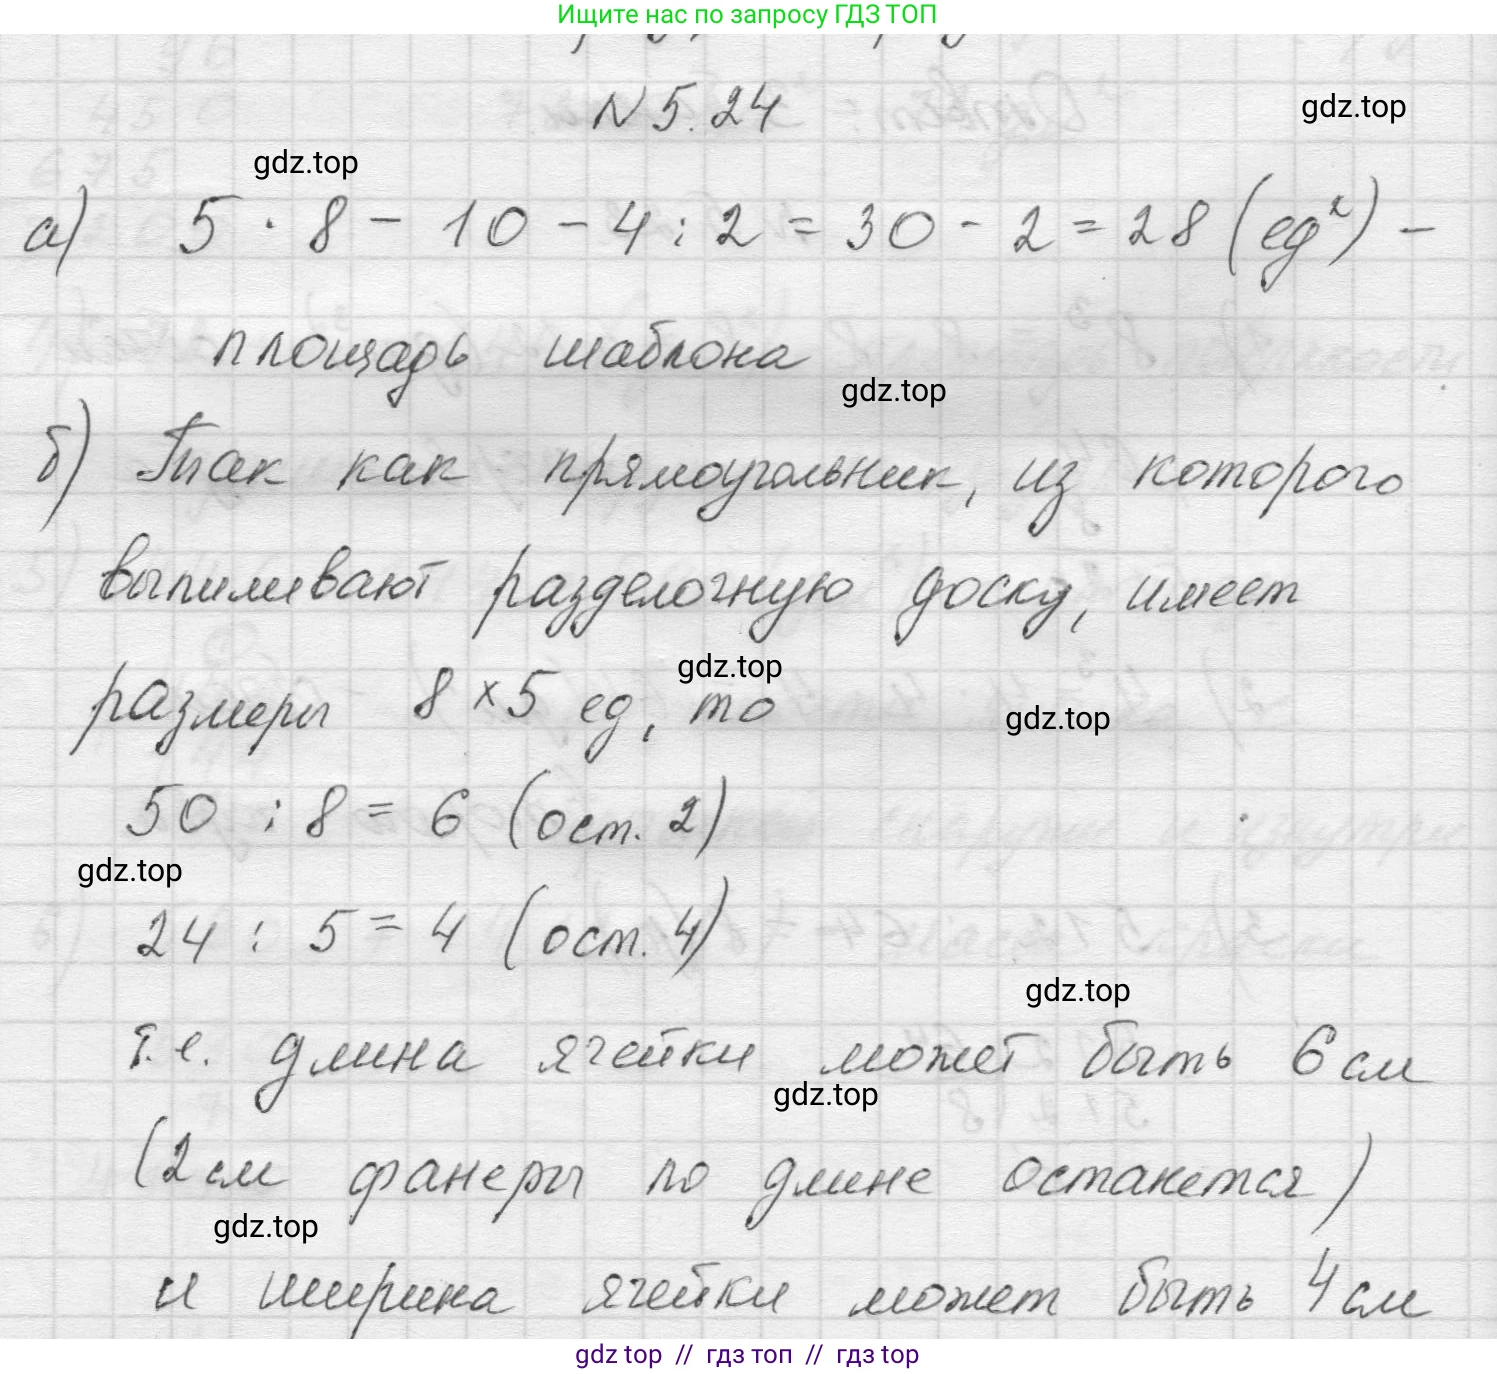 Ищите нас по запросу ГДЗ ТОП
N 5.24
gdz.top
gdz.top
а) 5 · 8 - 10 - 4 : 2 = 30 - 2 = 28 (ед²) -
площадь шаблона
gdz.top
б) Так как прямоугольник, из которого
выпиливают разделочную доску, имеет
gdz.top
размеры 8 × 5 ед, то
gdz.top
50 : 8 = 6 (ост. 2)
gdz.top
24 : 5 = 4 (ост. 4)
gdz.top
т.е. длина ячейки может быть 6 см
gdz.top
(2 см фанеры по длине останется)
gdz.top
и ширина ячейки может быть 4 см
gdz top // гдз топ // гдз top